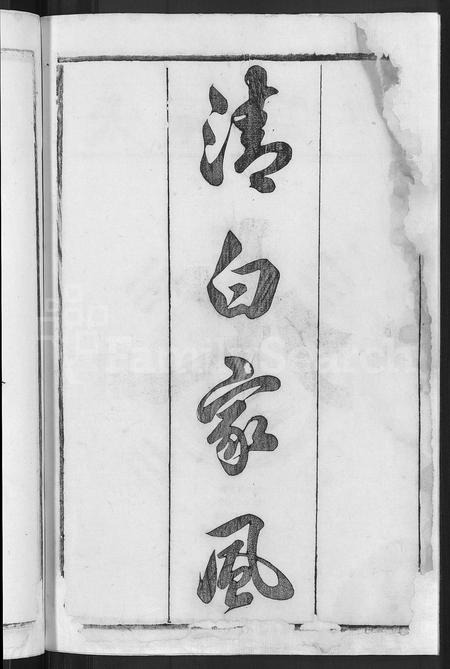 清白家風
FamilySearch